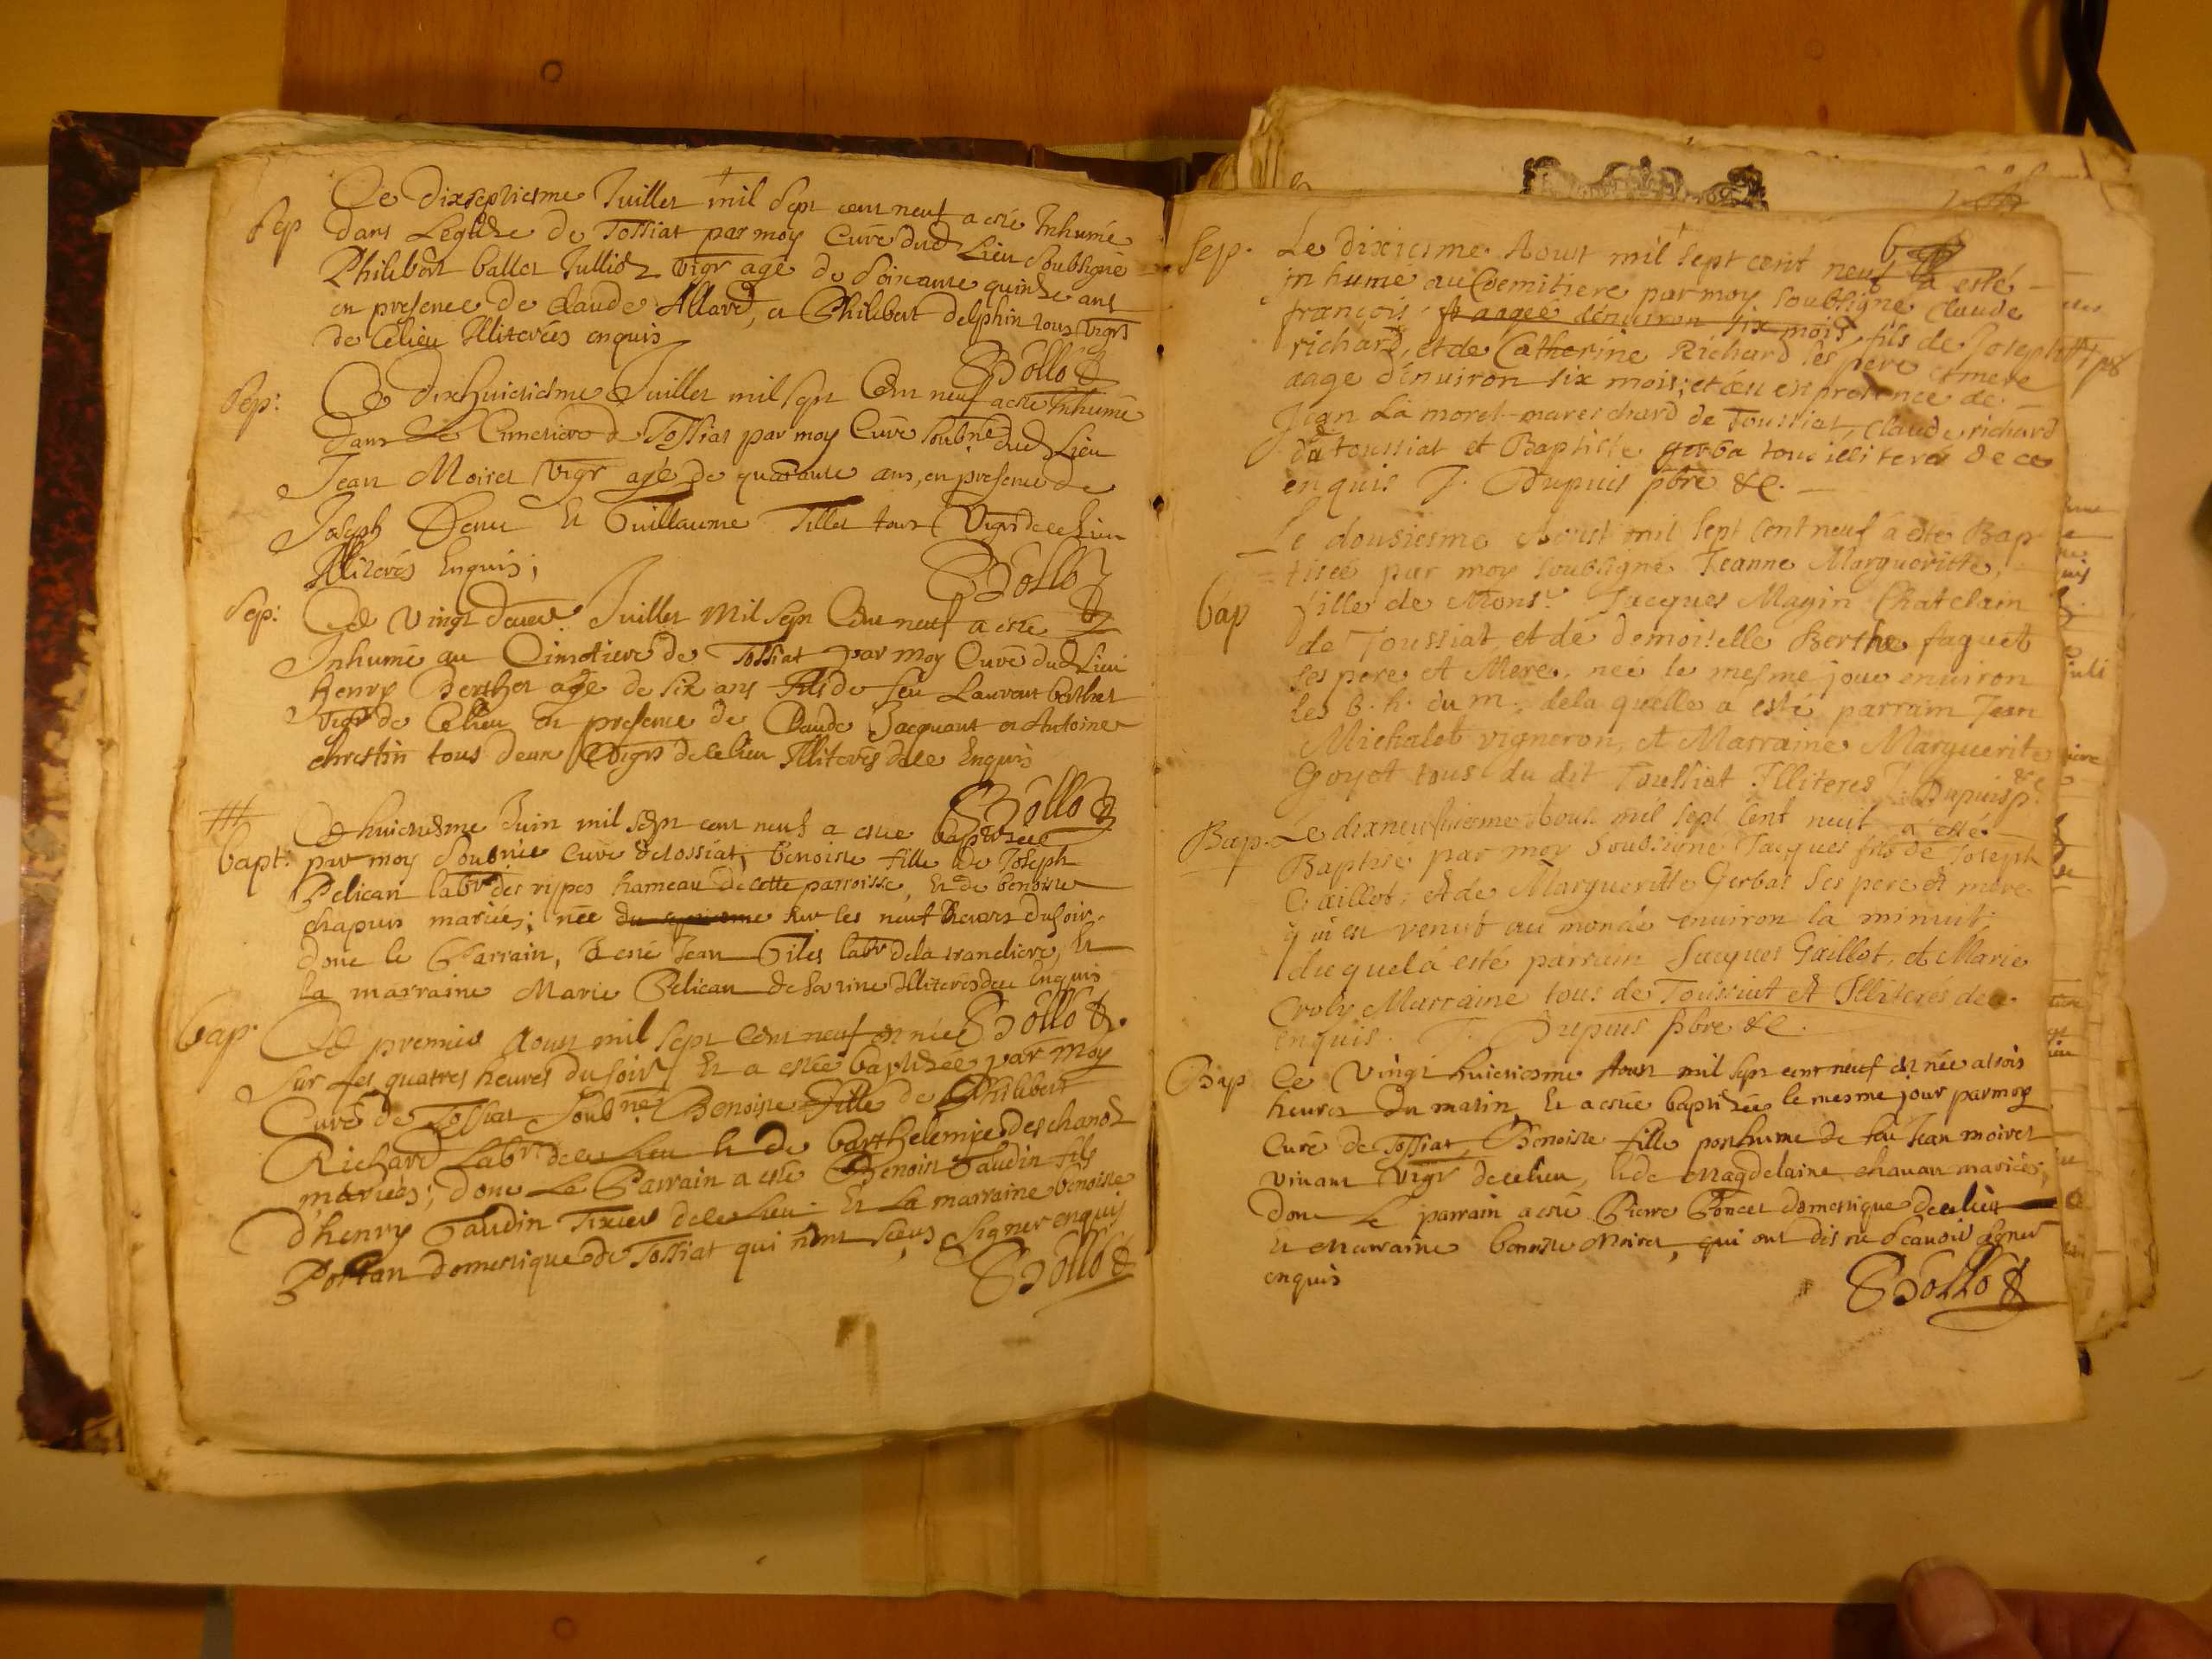 Sep
Ce dixseptiesme Juillet mil sept cent neuf a esté Inhumé
dans Leglize de Tossiat par moy Curé dud Lieu soubsigné
Philibert ballet Julliod vigr agé de soixante quinze ans
en presence de Claude Allard, et Philibert delphin tous vigrs
de celieu Illiterés enquis
Bollo
Sep:
Ce dixhuictiesme Juillet mil sept cent neuf a esté Inhumé
dans le Cimetiere de Tossiat par moy Curé soubné dud Lieu
Jean Moiret vigr agé de quarante ans, en presence de
Joseph Et Guillaume Tillet tous vigrs de ce Lieu
Illiterés Enquis;
Bollo
Sep:
Ce vingt deux Juillet mil sept cent neuf a esté
Inhumé au Cimetiere de Tossiat par moy Curé dud Lieu
henry berthet agé de six ans fils de feu Laurent berthet
vigr de Celieu en presence de Claude Jacquant et Antoine
chrestin tous deux vigrs de celieu Illiterés de ce Enquis
Bollo
Bapt:
Ce huictiesme Juin mil sept cent neuf a estee baptizee
par moy soubné curé de tossiat, benoiste fille de Joseph
Pelican labr des rippes hameau de cette parroisse, Et de benoiste
chapuis mariés; née du septiesme sur les neuf heures du soir,
dont le Parrain, a esté Jean Giles labr de la tranclere, Et
la marraine Marie Pelican de Illiterés de ce Enquis
Bollo
bap.
Ce premier Aoust mil sept cent neuf est née
sur les quatres heures du soir, Et a estée baptizée par moy
Curé de Tossiat soubné Benoiste fille de Philibert
Richard Labr de ce lieu et de barthelemie deschanod
mariées; dont Le Parrain a esté Benoist Gaudin fils
d'henry Gaudin Tixier de ce Lieu Et La marraine benoiste
domestique de Tossiat qui n'ont sceus signer enquis
Bollo
6
Sep.
Le dixiesme Aoust mil sept cent neuf a esté
inhumé au Coemitiere par moy soubsigné Claude
françois aagée d'environ six mois fils de Joseph
richard, et de Catherine Richard ses pere et mere
aagé d'environ six mois; et ce en presence de
Jean La moret mareschard de Toussiat, Claude richard
du toussiat et Baptiste gerba tous illiteres de ce
enquis J. Dupuis pbre &c.
bap
Le dousiesme Aoust mil sept cent neuf a esté Bap-
tisée par moy soubsigné Jeanne Marguerite,
fille de Monsr. Jacques Magin Chatelain
de Toussiat, et de demoiselle Berthe faguet
ses pere et Mere, née le mesme jour environ
les 6. h. du m., dela quelle a esté parrain Jean
Michalet vigneron, et Marraine Marguerite
Goyet tous du dit Toussiat Illiteres J. Dupuis
Bap.
Le dixneufviesme Aoust mil sept cent neuf a esté
Baptisé par moy soubsigné Jacques fils de Joseph
Gaillot, et de Marguerite Gerbat ses pere et mere
qui est venut au monde environ la minuit.
duquel a esté parrain Jacques Gaillot, et Marie
Croly Marraine tous de Toussiat et Illiterés de ce
enquis. J. Dupuis pbre &c.
Bap
Ce vingt huictiesme Aoust mil sept cent neuf est née a trois
heures du matin, Et a estée baptizée le mesme jour par moy
Curé de Tossiat, Benoiste fille posthume de feu Jean moiret
vivant vigr de celieu, et de Magdelaine chanan mariés;
dont le parrain a esté Pierre Poncet domestique de ce lieu
et Marraine benoiste Moiret, qui ont dis ne scavoir signer
enquis
Bollo